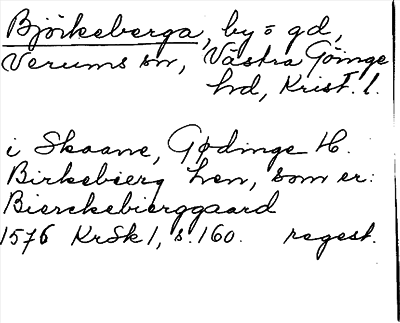 Björkeberga, by o gd,
Verums sn, Västra Göinge
hd, Krist. l.
i Skaane, Gødinge H.
Birkebierg hen, som er:
Bierckebierggaard
1576 KrSk 1, s. 160. regest.